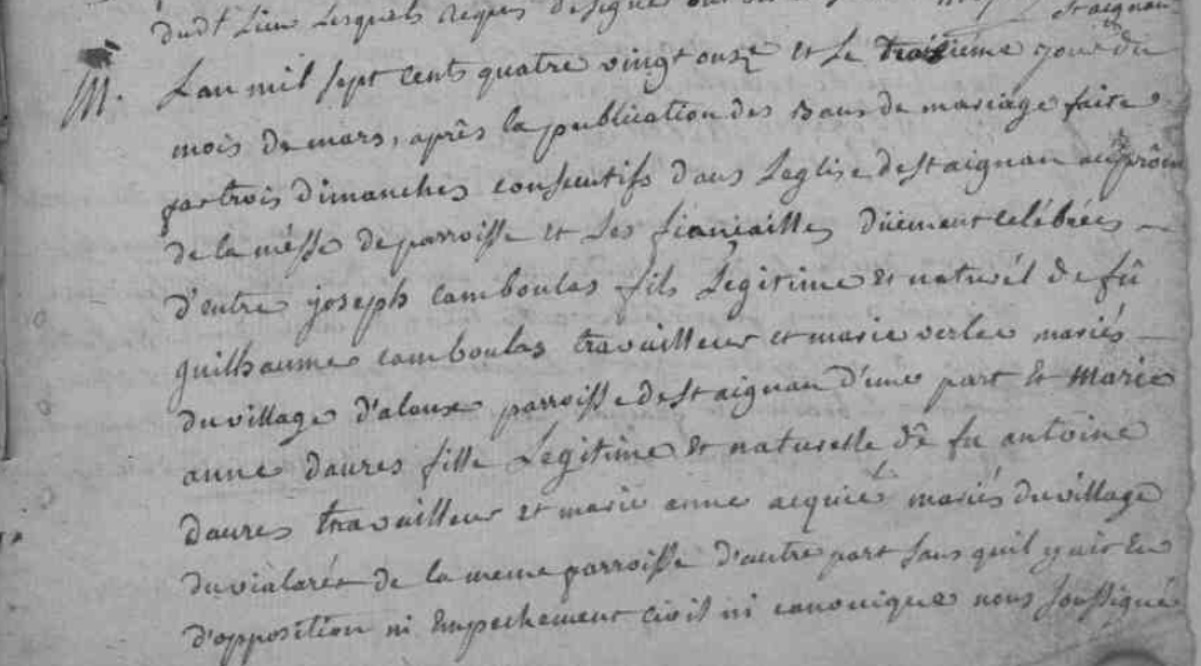 dudt lieu lesquels requis de signer
St aignan
M. Lan mil sept cents quatre vingt onze et le traisième jour du
mois de mars, après la publication des Bans de mariage faite
par trois dimanches consecutifs dans Leglise de St aignan au prône
de la mésse de parroisse et Les fiançailles düement celébrées
d'entre joseph camboulas fils Legitime et naturél de fû
guilhaume camboulas travailleur et marie verlac mariés
du village d'aloux parroisse de St aignan d'une part Et Marie
anne daures fille Legitime Et naturelle dê fu antoine
daures travailleur et marie anne acquié mariés du village
du vialarét de la meme parroisse d'autre part sans quil y ait Eu
d'opposition ni Empechement civil ni canonique nous soussigné